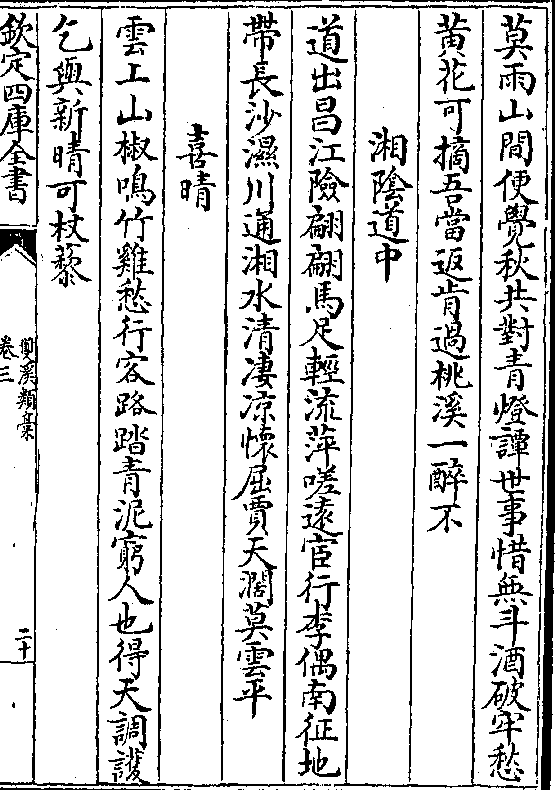 莫雨山間便覺秋共對青燈譚世事惜無斗酒破牢愁
黃花可摘吾當返肯過桃溪一醉不
湘陰道中
道出昌江險翩翩馬足輕流萍嗟遠宦行李偶南征地
帶長沙濕川通湘水清凄凉懷屈賈天濶莫雲平
喜晴
雲工山椒鳴竹雞愁行客路踏青泥窮人也得天調護
乞與新晴可杖藜
欽定四庫全書
雙溪類藁
卷三
二十